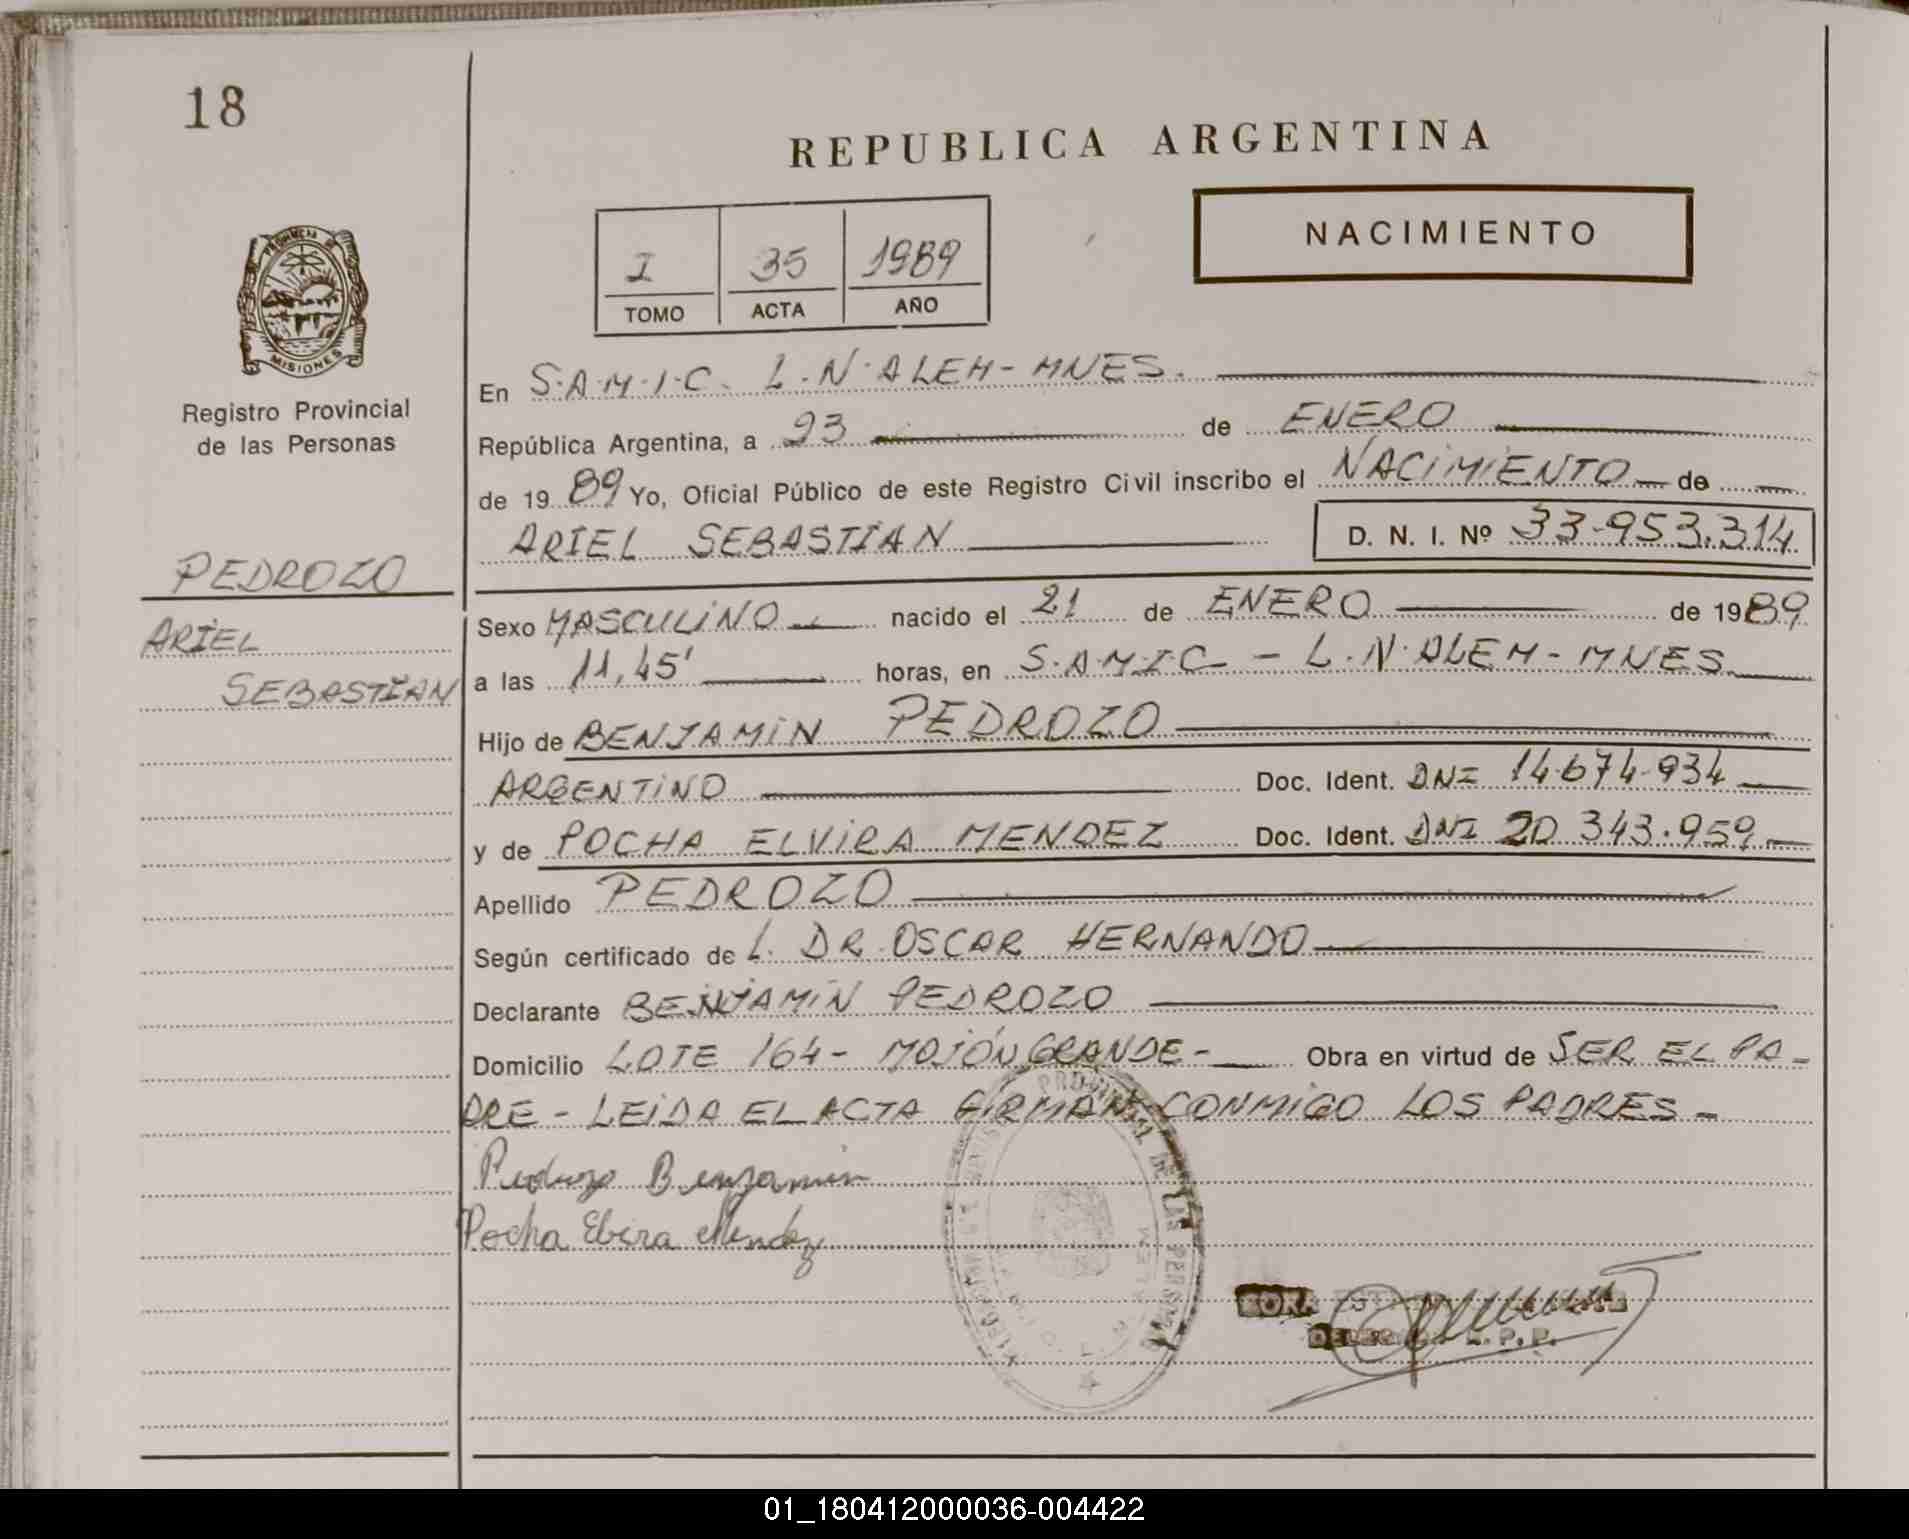 18
REPUBLICA ARGENTINA
NACIMIENTO
I 35 1989
TOMO ACTA AÑO
PROVINCIA DE
MISIONES
Registro Provincial
de las Personas
En S.A.M.I.C. L.N.ALEM-MNES.
República Argentina, a 23 de ENERO
de 1989 Yo, Oficial Público de este Registro Civil inscribo el NACIMIENTO de
ARIEL SEBASTIAN D. N. I. Nº 33.953.314
PEDROZO
ARIEL
SEBASTIAN
Sexo MASCULINO nacido el 21 de ENERO de 1989
a las 11,45' horas, en S.A.M.I.C - L.N.ALEM-MNES
Hijo de BENJAMIN PEDROZO
ARGENTINO Doc. Ident. DNI 14.674.934
y de POCHA ELVIRA MENDEZ Doc. Ident. DNI 20.343.959
Apellido PEDROZO
Según certificado de L. DR. OSCAR HERNANDO
Declarante BENJAMIN PEDROZO
Domicilio LOTE 164 - MOJÓN GRANDE - Obra en virtud de SER EL PA-
DRE - LEIDA EL ACTA FIRMAN CONMIGO LOS PADRES -
Pedrozo Benjamin
Pocha Elvira Mendez
DE LAS PERSONAS
R.P.P.
01_180412000036-004422